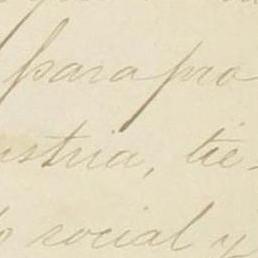 para pro
ustria, tie-
o social y